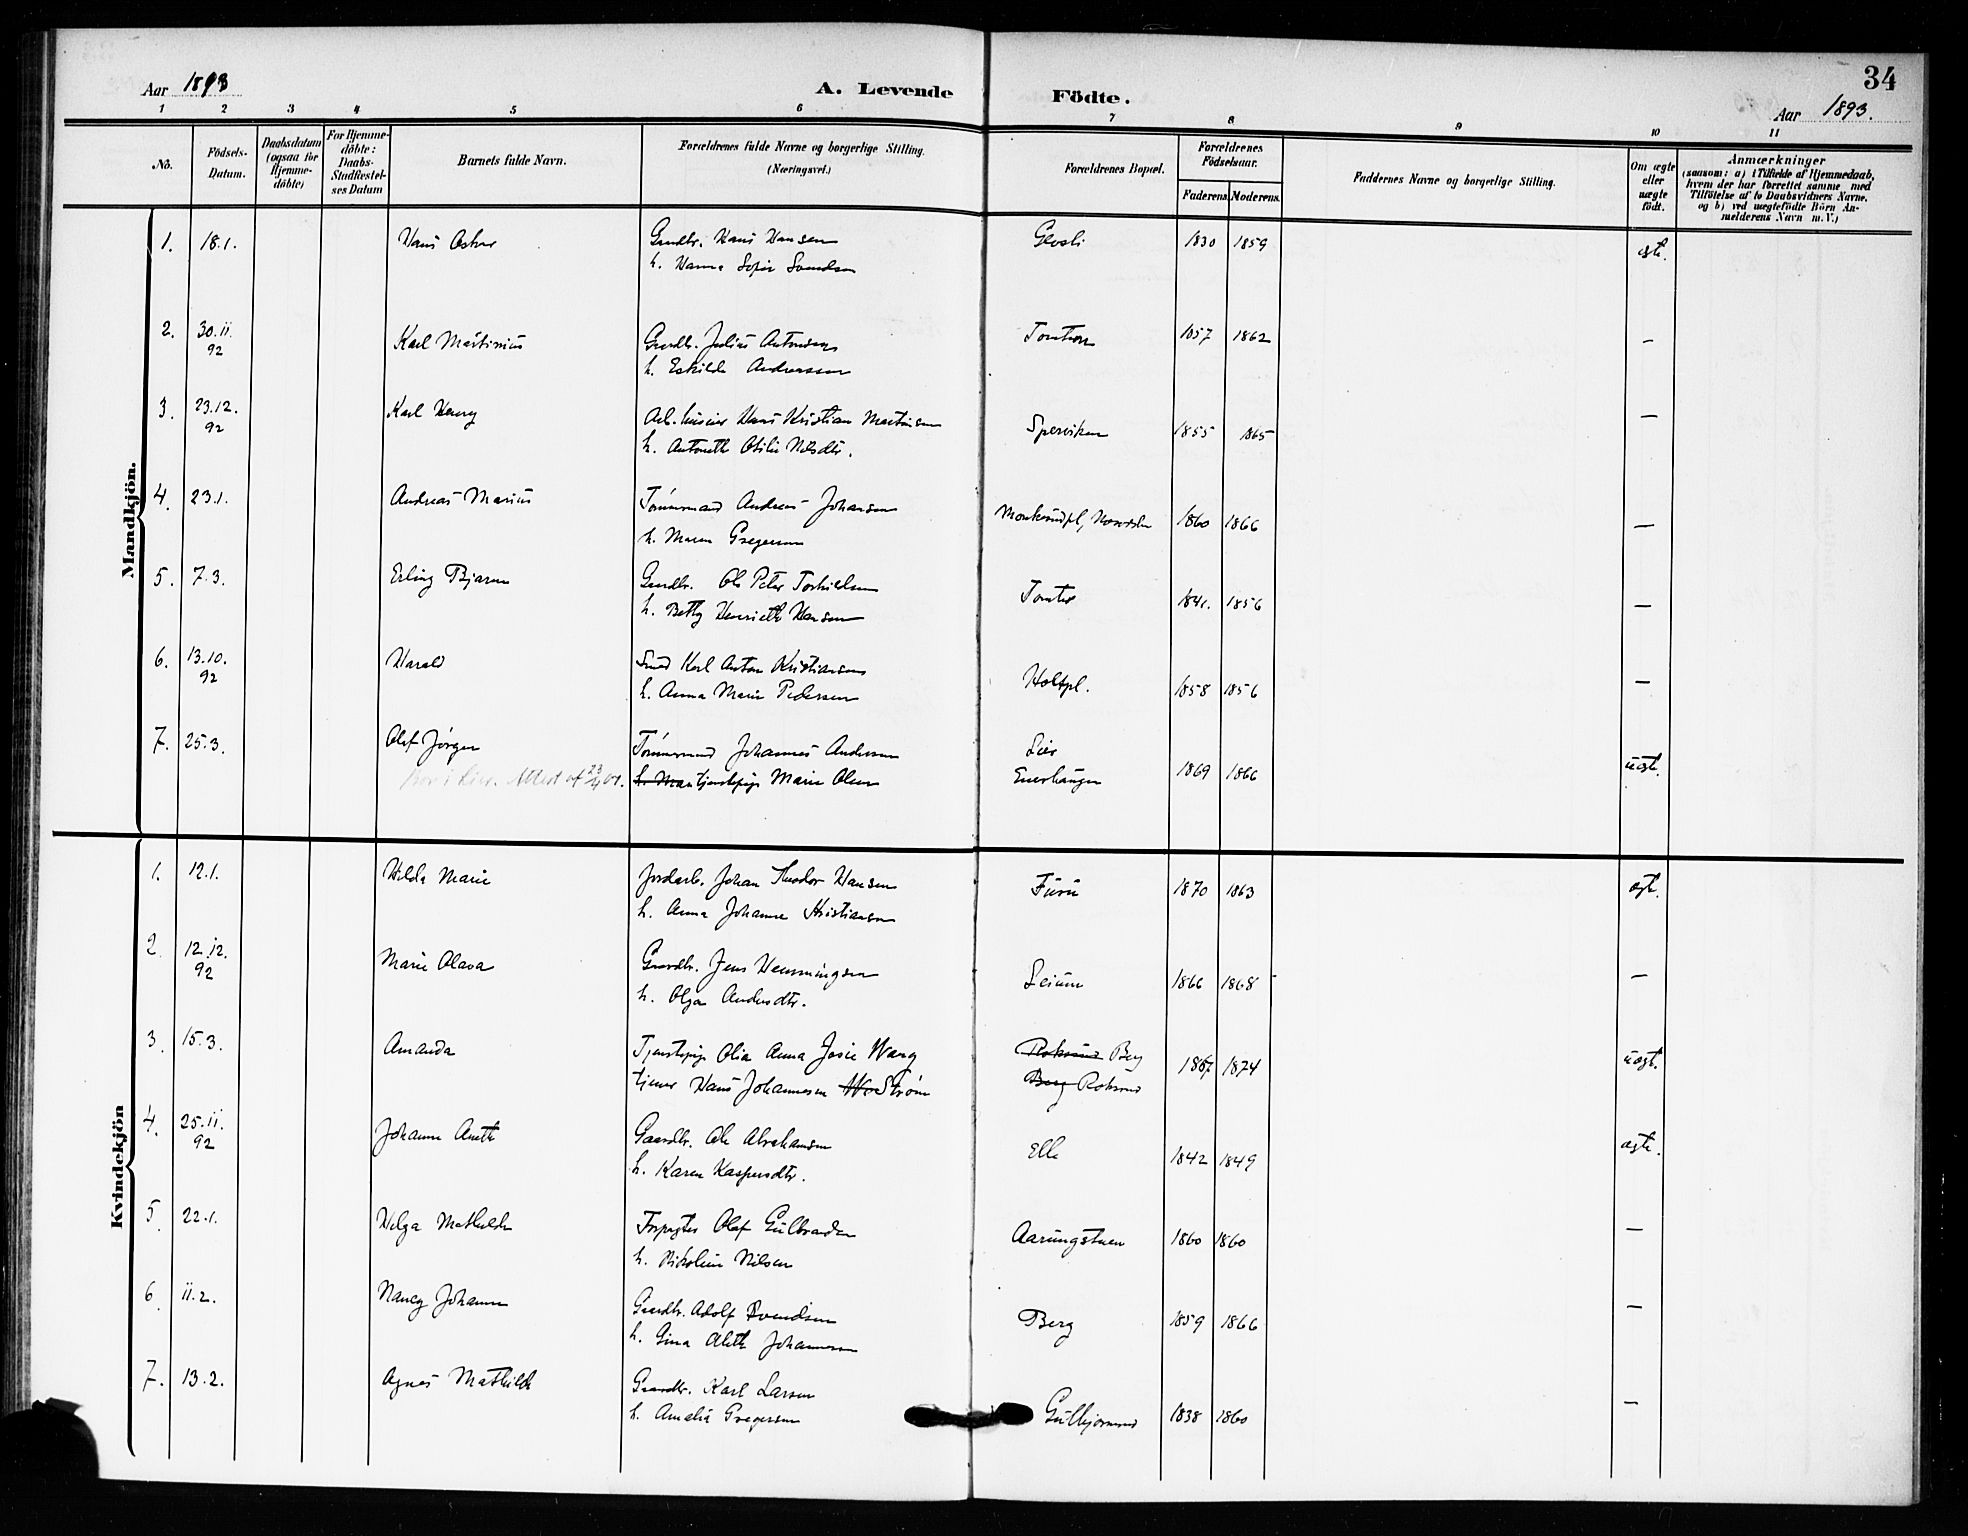 34
Aar 1893
A. Levende Födte.
Aar 1893.
1 2 3 4 5 6 7 8 9 10 11
No.
Födsels-
Datum.
Daabsdatum
(ogsaa for
Hjemme-
döbte)
For Hjemme-
döbte:
Daabs-
Stadfæstel-
ses Datum
Barnets fulde Navn.
Forældrenes fulde Navne og borgerlige Stilling.
(Næringsvei.)
Forældrenes Bopæl.
Forældrenes
Födselsaar.
Faderens. Moderens.
Faddernes Navne og borgerlige Stilling.
Om ægte
eller
uægte
födt.
Anmærkninger
(saasom: a) i Tilfælde af Hjemmedaab,
hvem der har forrettet samme med
Tilföielse af to Daabsvidners Navne,
og b) ved uægtefödte Börn An-
melderens Navn m. V.)
Mandkjön.
1. 18.1. Hans Oskar Gaardbr. Hans Hansen 1830 1859 ægte.
h. Hanna Sofie
2. 30.11. Karl Martinius Gaardbr. Julius Antonsen 1857 1862 —
92
h. Eskilde Andreassen
3. 23.12. Karl Henry Hans Kristian Martinsen Sperviken 1855 1865 —
92
h. Antonette Otilie Nilsdtr.
4. 23.1. Andreas Marius Tömmermand Andreas Johansen 1860 1866 —
h. Maren Gregersen
5. 7.3. Erling Bjarne Gaardbr. Ole Peter Torkildsen Tomter 1856 —
h. Betty Henriette Hansen
6. 13.10. Harald Smed Karl Anton Kristiansen Holtpl. 1858 1856 —
92
h. Anna Marie Pedersen
7. 25.3. Olaf Jörgen Tömmermand Johannes Andersen Lier 1869 1866 uægte.
Bor i Lier. Attest af tjenestepige Marie Olsen Enerhaugen
Kvindekjön
1. 12.1. Hilda Marie Jordarb. Johan Theodor Hansen Furu 1870 1863 ægte.
h. Anna Johanne Kristiansen
2 12.12. Marie Olava Gaardbr. Jens Henningsen 1866 1868 —
92
h. Olga Andersdtr.
3. 15.3. Amanda Tjenestepige Olia Anna Josie Wang Berg 1867 1874 uægte.
tjener Hans Johannesen Ström Berg
4. 25.11. Johanne Anette Gaardbr. Ole Abrahamsen Elle 1842 1849 ægte.
92
h. Karen Kaspersdtr.
5. 22.1. Helga Mathilde Forpagter Olaf Gulbrandsen Aarungstuen 1860 1860 —
h. Nikoline Nilsen
6. 11.2. Nancy Johanne Gaardbr. Adolf Svendsen Berg 1859 1866 —
h. Gina Alette Johannesen
7. 13.2. Agnes Mathilde Gaardbr. Karl Larsen Gulbjørnrud 1838 1860 —
h. Amalia Gregersen